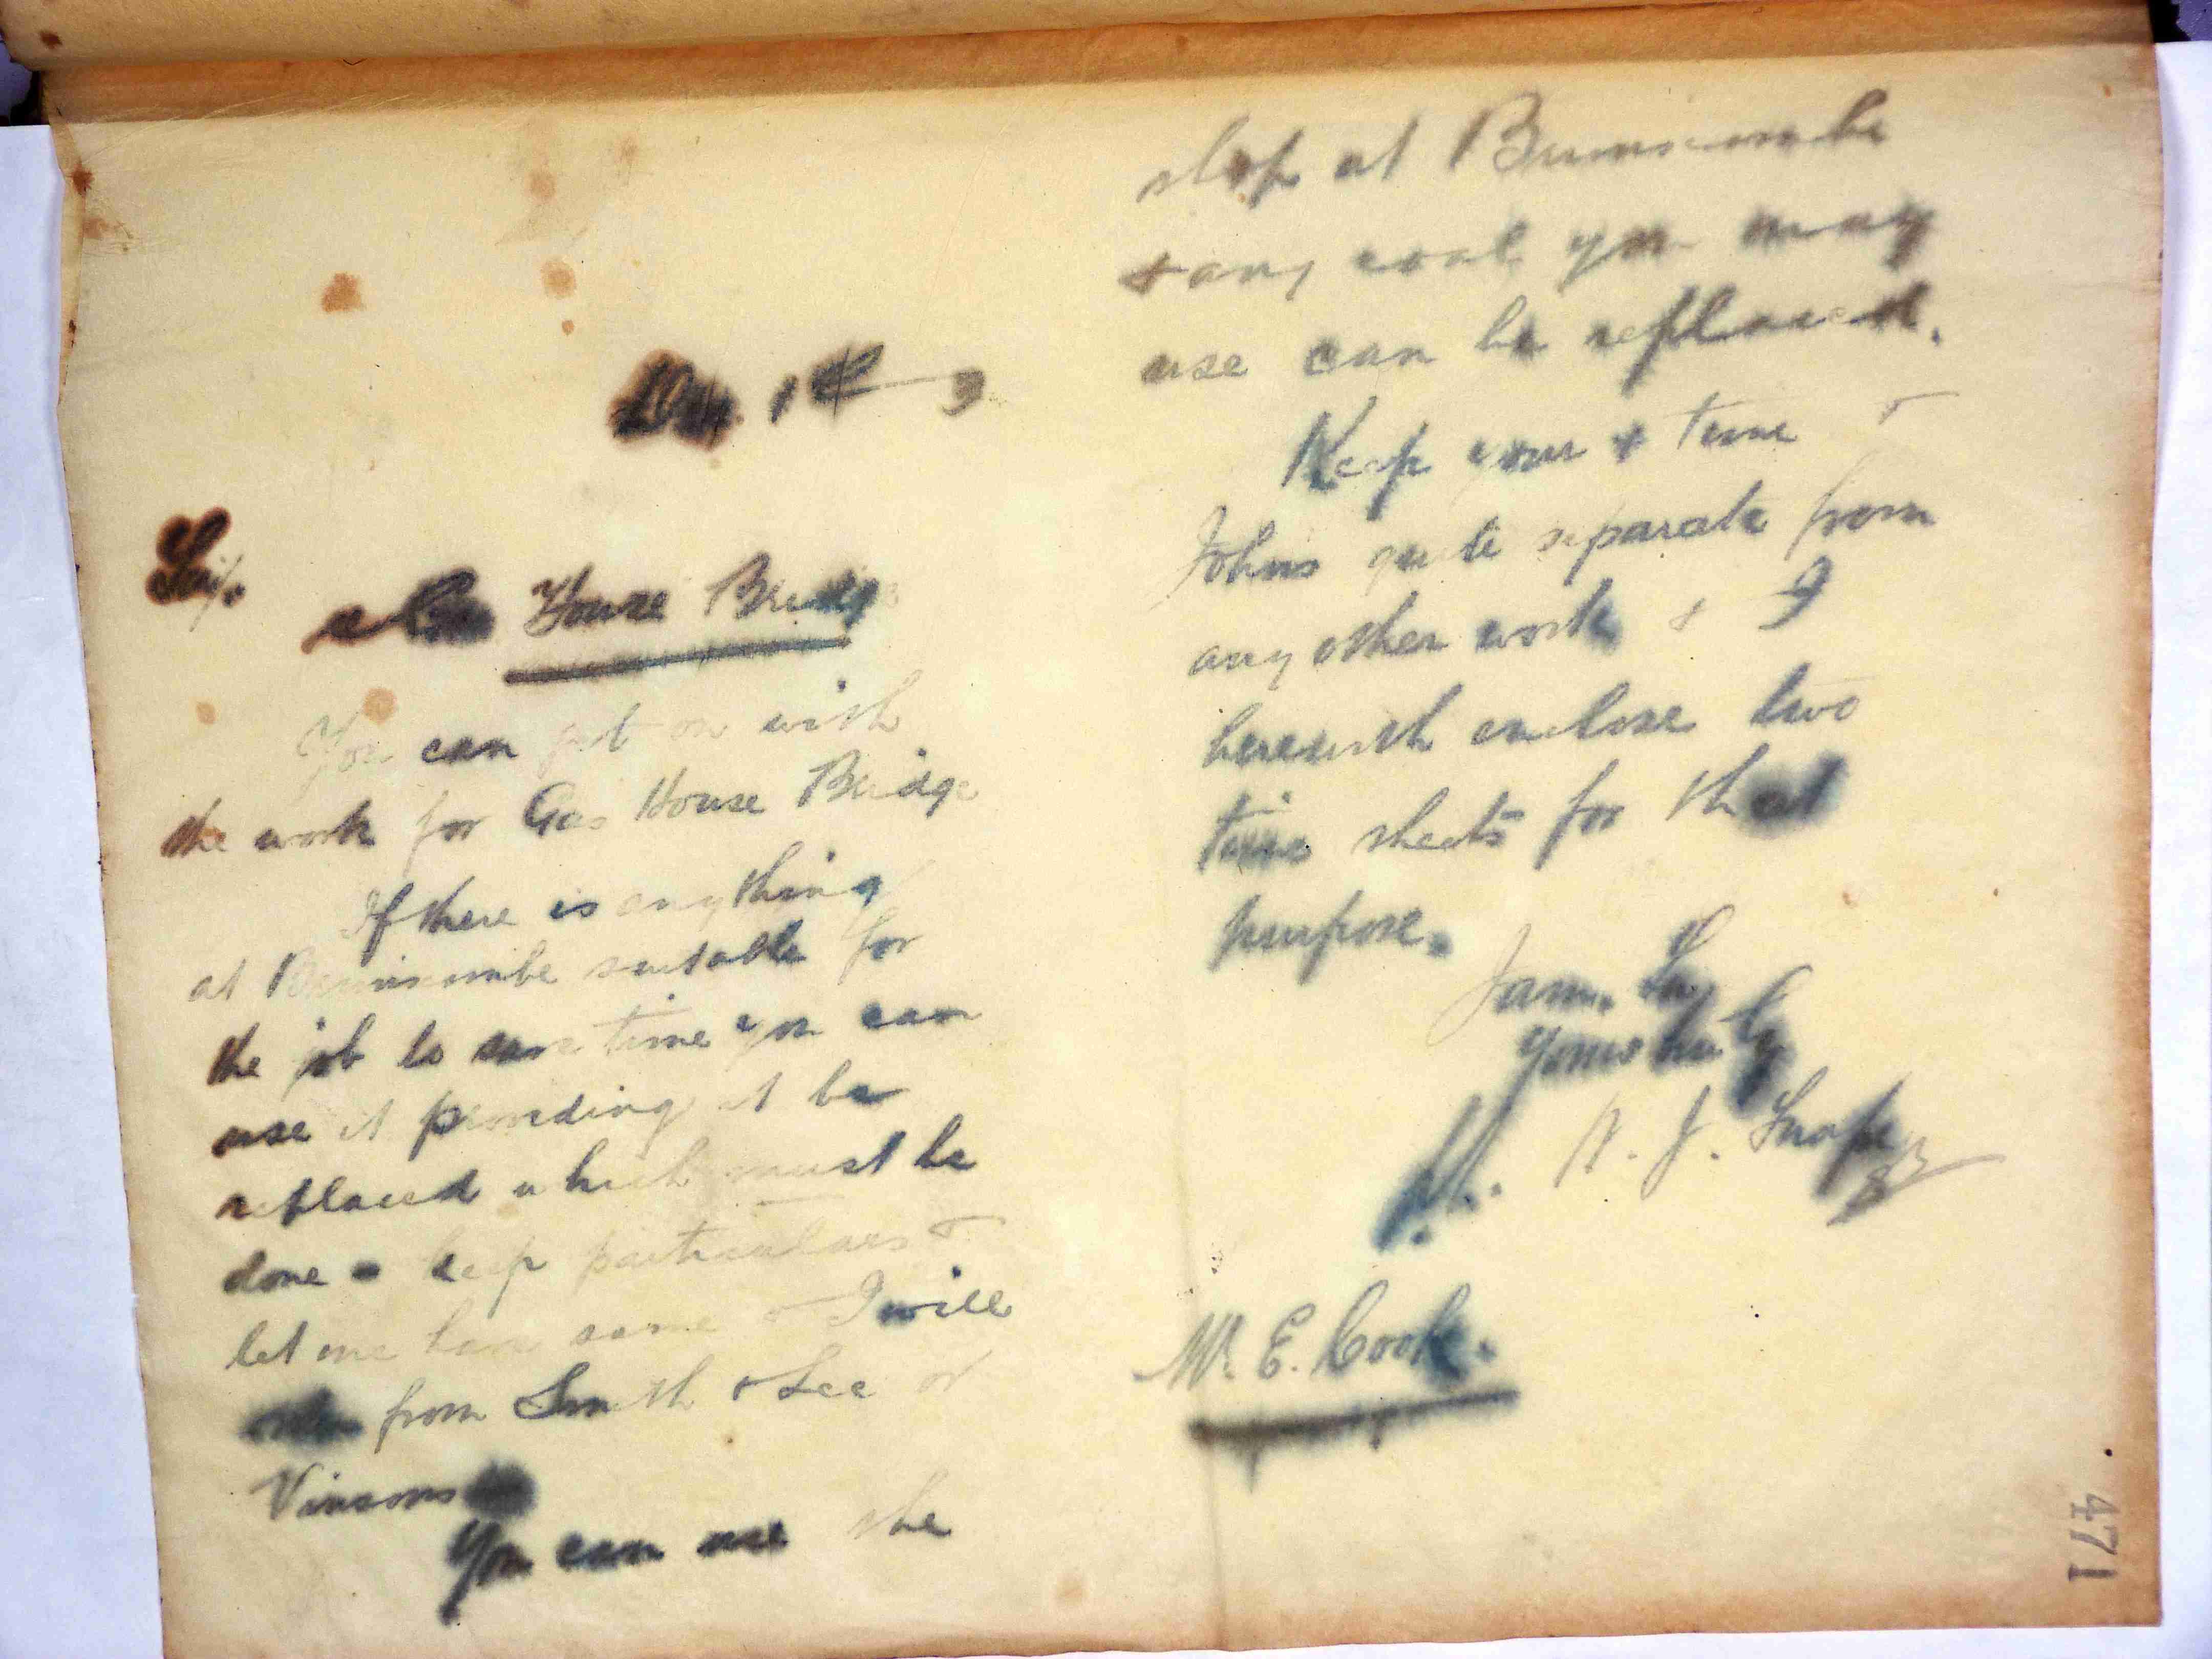 Sir,
re Gas House Bridge
You can get on with
the work for Gas House Bridge
If there is anything
at Brimscombe suitable for
the job to save time you can
use it providing it be
replaced which must be
done & keep particulars &
let me have same & I will
order from Smith & Lee or
Vinsons
You can use the
shop at Brimscombe
& any coal you may
use can be replaced.
Keep your & time &
Johns quite separate from
any other work & I
herewith enclose two
time sheets for that
purpose.
I am, Sir,
Yours truly
A. J. Snape
Mr. E. Cook.
471